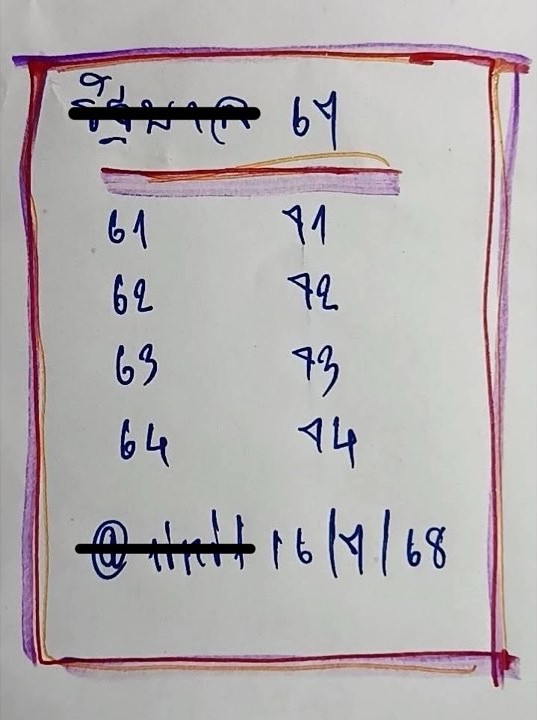 67
61 71
62 72
63 73
64 74
16/7/68